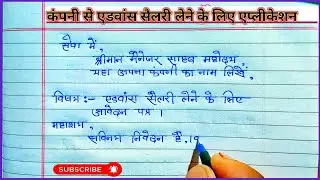 कंपनी से एडवांस सैलरी लेने के लिए एप्लीकेशन
सेवा में,
श्रीमान मैनेजर साहब महोदय,
यहा अपना कंपनी का नाम लिखें,
विषय :- एडवांस सैलरी लेने के लिए
आवेदन पत्र।
महाशय,
सविनय निवेदन है,
SUBSCRIBE